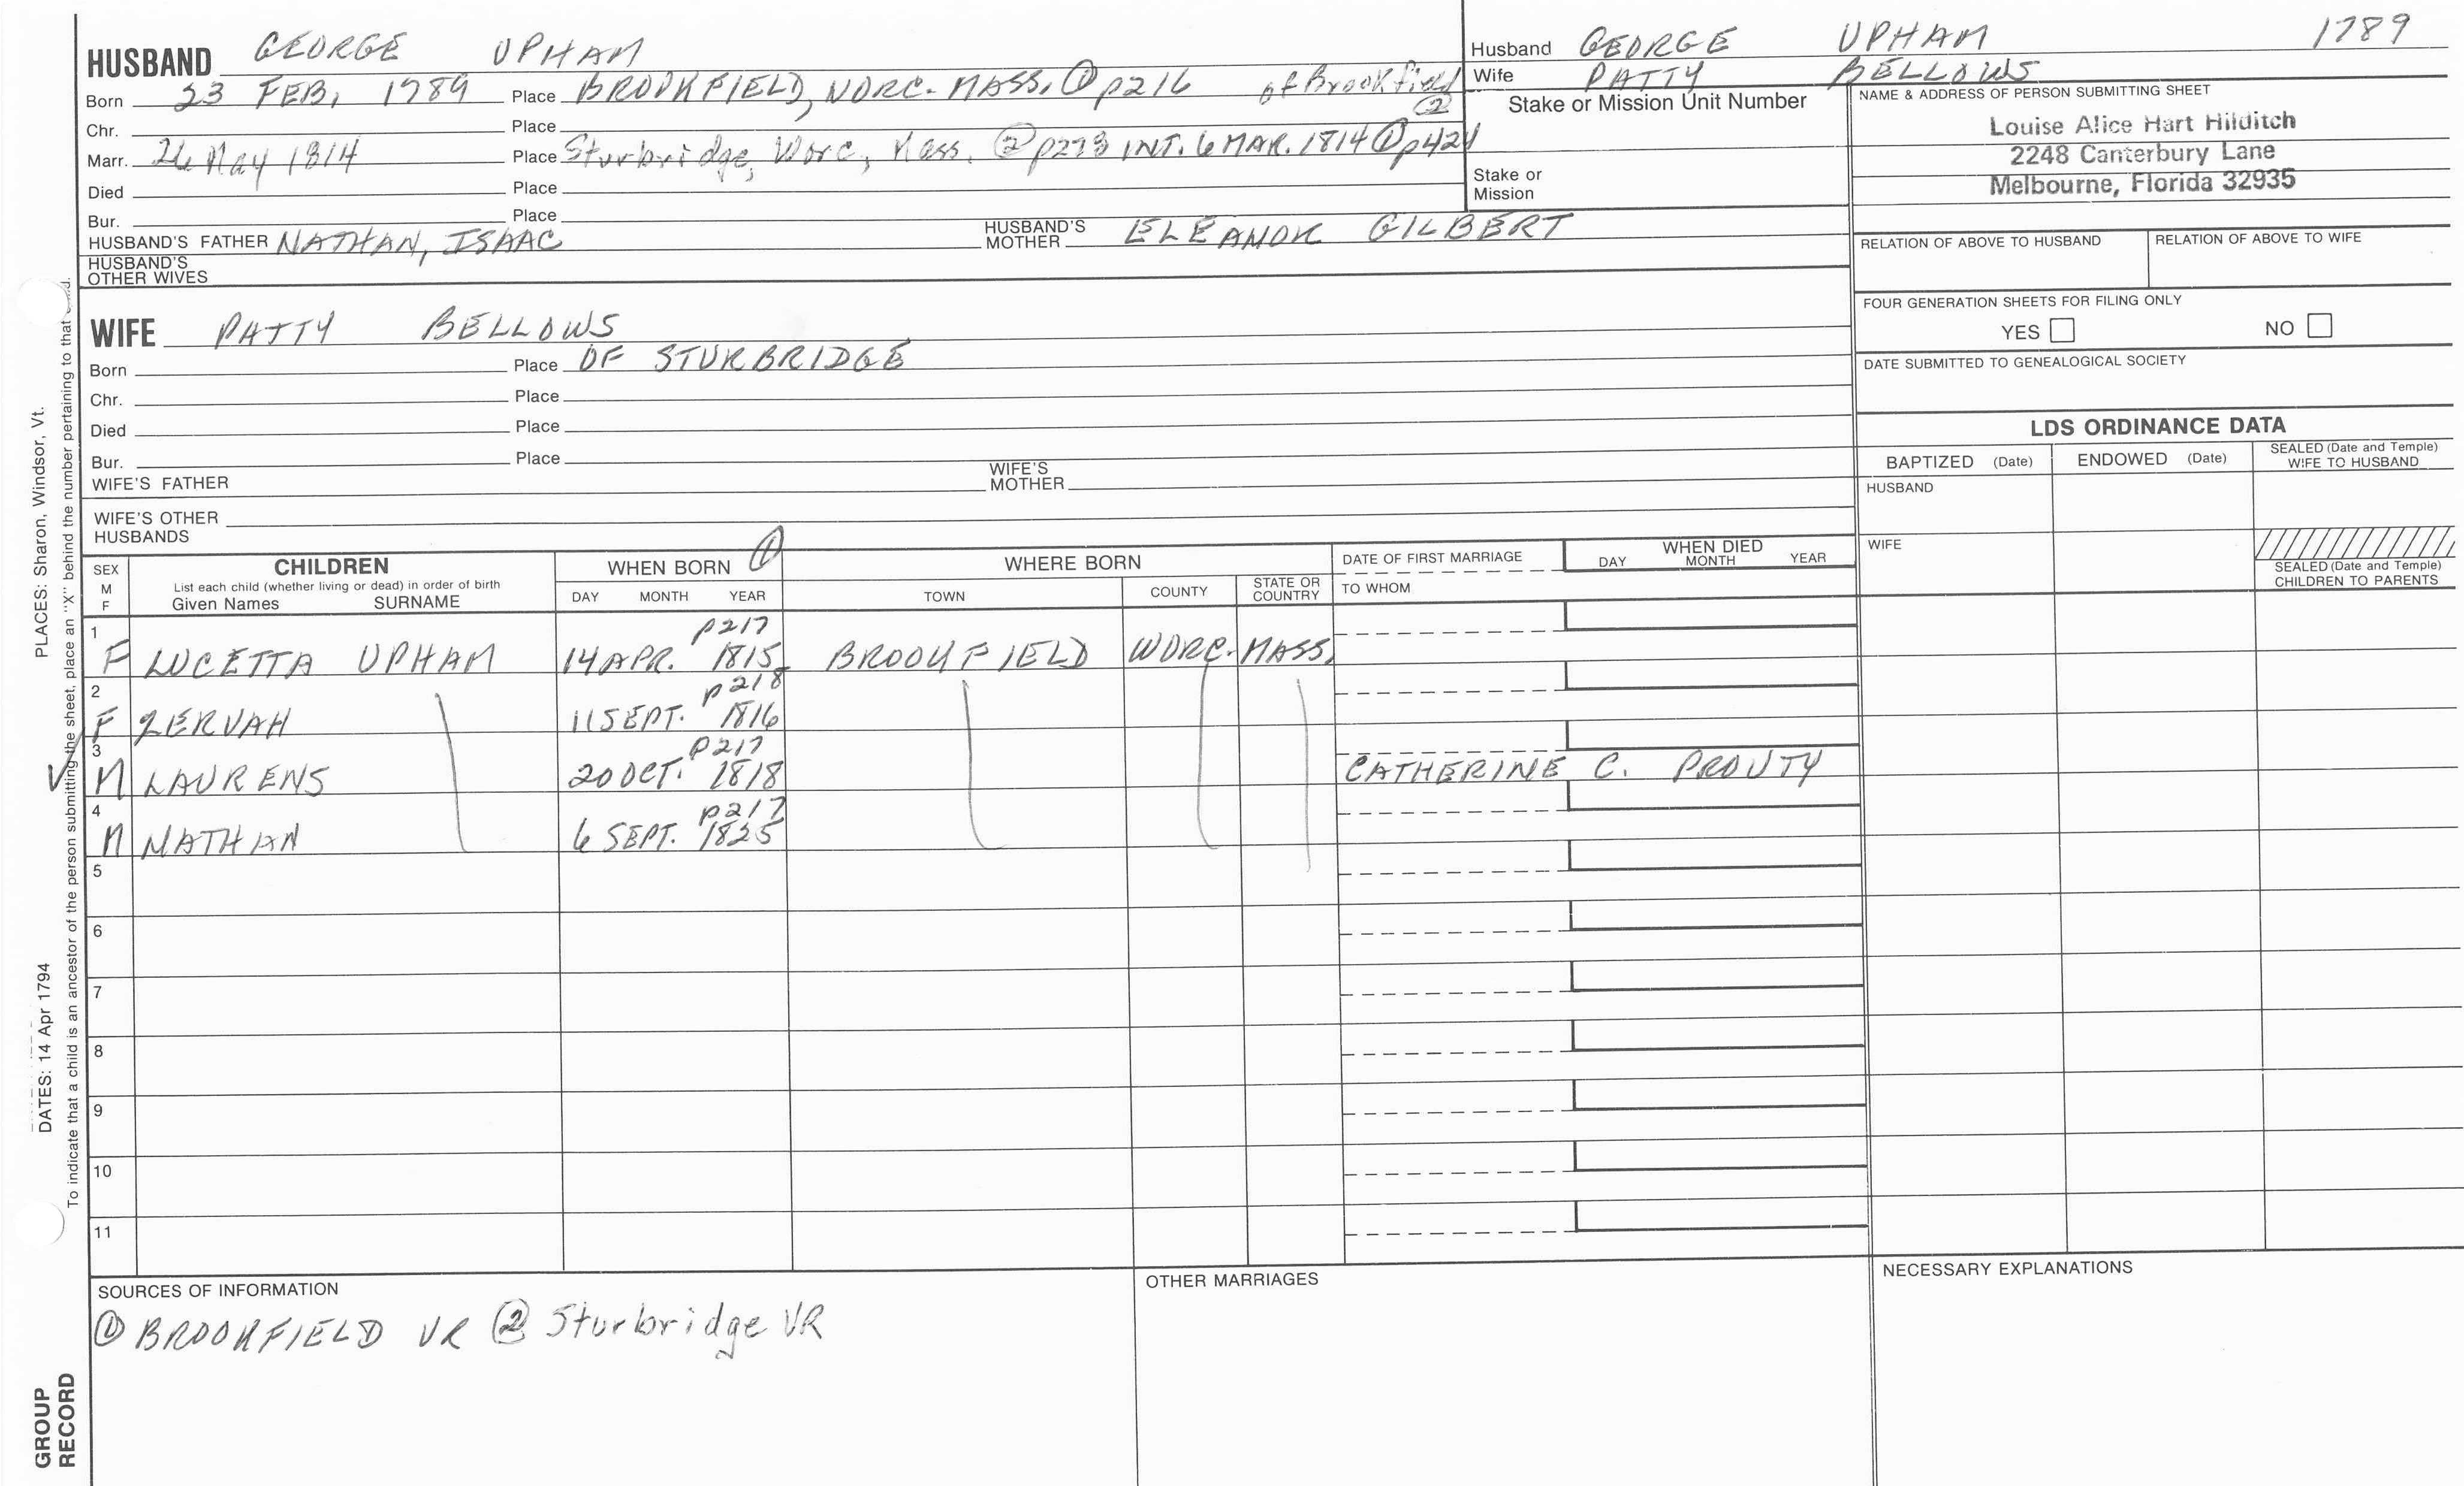 HUSBAND GEORGE UPHAM
Born 23 FEB, 1789 Place BROOKFIELD, WORC. MASS. ① p216 of Brookfield ②
Chr. Place
Marr. 26 May 1814 Place Sturbridge, Worc, Mass. ② p273 INT. 6 MAR. 1814 ① p424
Died Place
Bur. Place
HUSBAND'S FATHER NATHAN, ISAAC HUSBAND'S MOTHER ELEANOR GILBERT
HUSBAND'S OTHER WIVES
Husband GEORGE UPHAM 1789
Wife PATTY BELLOWS
Stake or Mission Unit Number
Stake or Mission
NAME & ADDRESS OF PERSON SUBMITTING SHEET
Louise Alice Hart Hilditch
2248 Canterbury Lane
Melbourne, Florida 32935
RELATION OF ABOVE TO HUSBAND RELATION OF ABOVE TO WIFE
FOUR GENERATION SHEETS FOR FILING ONLY
YES NO
DATE SUBMITTED TO GENEALOGICAL SOCIETY
WIFE PATTY BELLOWS
Born Place OF STURBRIDGE
Chr. Place
Died Place
Bur. Place
WIFE'S FATHER WIFE'S MOTHER
WIFE'S OTHER HUSBANDS
LDS ORDINANCE DATA
BAPTIZED (Date) ENDOWED (Date) SEALED (Date and Temple) WIFE TO HUSBAND
HUSBAND
WIFE
SEALED (Date and Temple) CHILDREN TO PARENTS
SEX M F
CHILDREN
List each child (whether living or dead) in order of birth
Given Names SURNAME
WHEN BORN ①
DAY MONTH YEAR
WHERE BORN
TOWN COUNTY STATE OR COUNTRY
DATE OF FIRST MARRIAGE
TO WHOM
WHEN DIED
DAY MONTH YEAR
1 p217
F LUCETTA UPHAM 14 APR. 1815 BROOKFIELD WORC. MASS.
2 p218
F ZERVAH 11 SEPT. 1816
3 p217
M LAURENS 20 OCT. 1818 CATHERINE C. PROUTY
4 p217
M NATHAN 6 SEPT. 1825
5
6
7
8
9
10
11
SOURCES OF INFORMATION
① BROOKFIELD VR ② Sturbridge VR
OTHER MARRIAGES
NECESSARY EXPLANATIONS
PLACES: Sharon, Windsor, Vt.
DATES: 14 Apr 1794
To indicate that a child is an ancestor of the person submitting the sheet, place an "X" behind the number pertaining to that
GROUP
RECORD